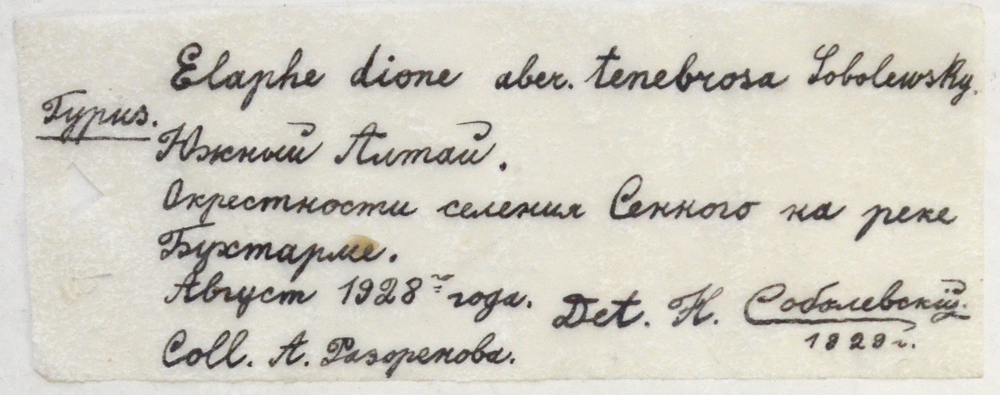 Elaphe dione aber. tenebrosa Sobolewsky.
Гуриз.
Южный Алтай.
Окрестности селения Сенного на реке
Бухтарме.
Август 1928го года. Det. Н. Соболевский.
1929г.
Coll. А. Разоренова.